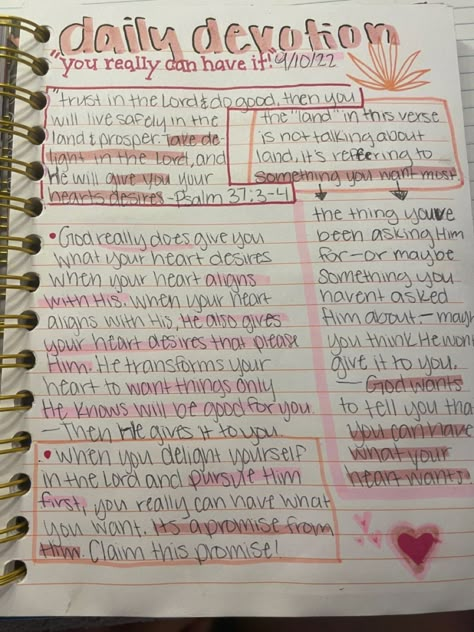 daily devotion
"you really can have it!" 9/10/22
"trust in the Lord & do good, then you
will live safely in the
land & prosper. Take de-
light in the Lord, and
He will give you your
hearts desires -Psalm 37:3-4
the "land" in this verse
is not talking about
land, it's refering to
something you want most
the thing you've
been asking Him
for-or maybe
something you
havent asked
Him about.-
you think He
give it to you.
— God wants
to tell you
you can have
what your
heart wants.
• God really does give you
what your heart desires
when your heart aligns
with His. when your heart
aligns with His, He also gives
your heart desires that please
Him. He transforms your
heart to want things only
He knows will be good for you.
- Then He gives it to you.
• When you delight yourself
in the Lord and pursue Him
first, you really can have what
you want. Its a promise from
Him. Claim this promise!